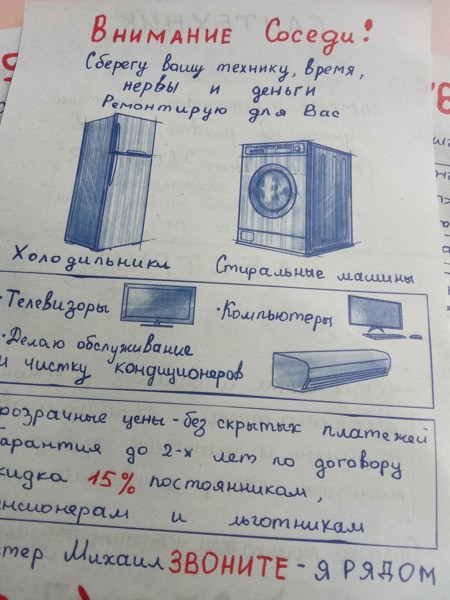 Внимание Соседи!
Сберегу вашу технику, время,
нервы и деньги
Ремонтирую для Вас
Холодильники
Стиральные машины
·Телевизоры
·Компьютеры
·Делаю обслуживание
и чистку кондиционеров
розрачные цены - без скрытых платежей
арантия до 2-х лет по договору
кидка 15% постоянникам,
нсионерам и льготникам
тер Михаил ЗВОНИТЕ - Я РЯДОМ